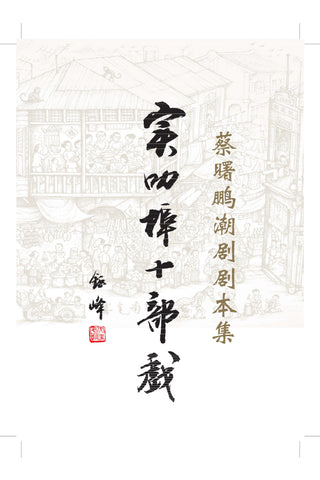 蔡曙鹏潮剧剧本集
实叻埠十部戏